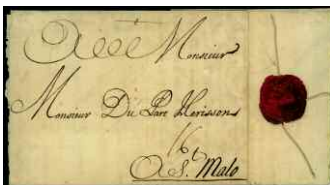 A Monsieur
Monsieur Du Parc Herisson
16
A S. Malo